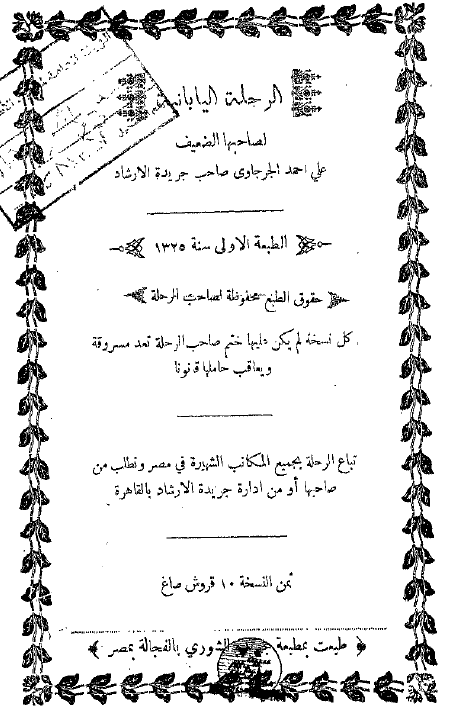 الرحلة اليابانية
لصاحبها الضعيف
علي احمد الجرجاوى صاحب جريدة الارشاد
الطبعة الاولى سنة ١٣٢٥
حقوق الطبع محفوظة لصاحب الرحلة
كل نسخة لم يكن عليها ختم صاحب الرحلة تعد مسروقة
ويعاقب حاملها قانونا
تباع الرحلة بجميع المكاتب الشهيرة في مصر وتطلب من
صاحبها أو من ادارة جريدة الارشاد بالقاهرة
ثمن النسخة ١٠ قروش صاغ
طبعت بمطبعة الشورى بالفجالة بمصر